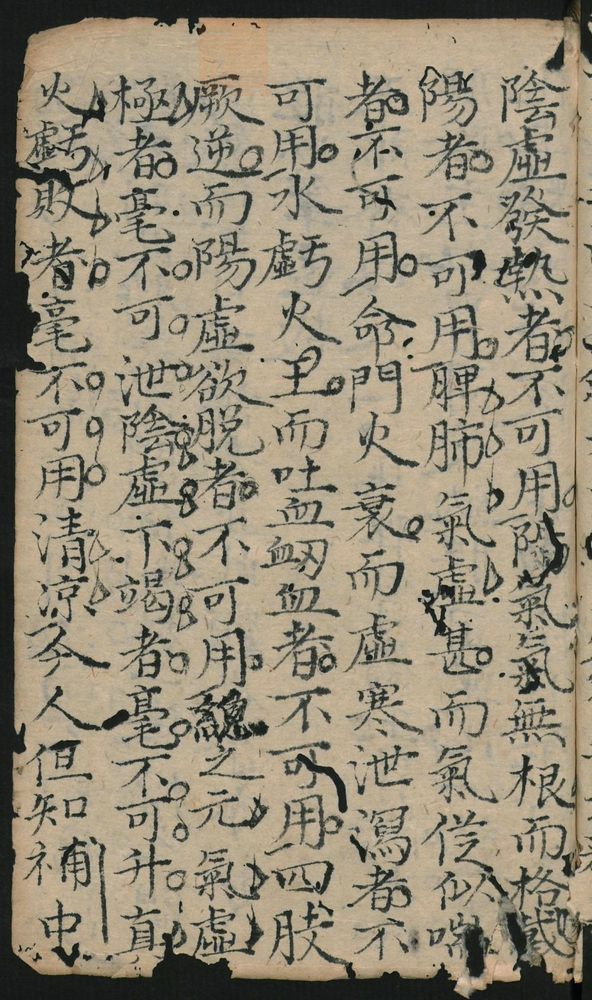 陰虛發熱者不可用陽氣氣無根而格戴
陽者不可用脾肺氣虛甚而氣促似喘
者不可用命門火衰而虛寒泄瀉者不
可用水虧火王而吐血衂血者不可用四肢
厥逆而陽虛欲脫者不可用總之元氣虛
極者毫不可泄陰虛下竭者毫不可升真
火虧敗者毫不可用清涼今人但知補中